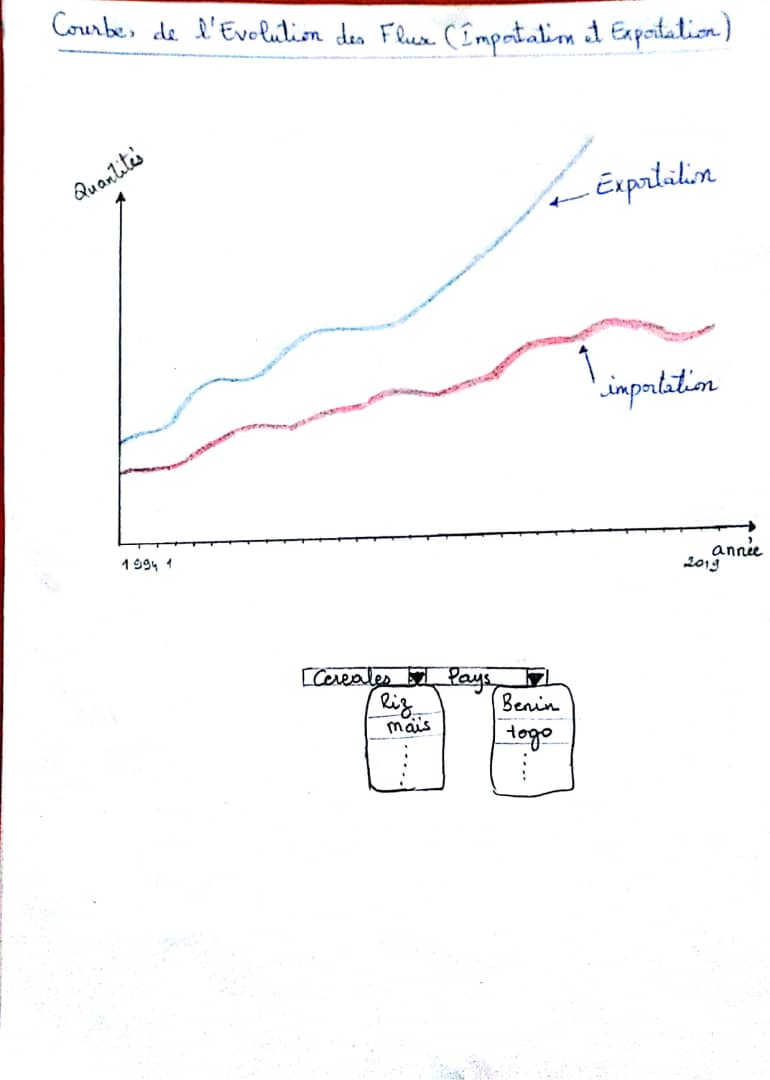 Courbes de l'Evolution des Flux (Importation et Exportation)
Quantités
Exportation
importation
année
1994 1
2019
Cereales Pays
Riz Benin
maïs togo